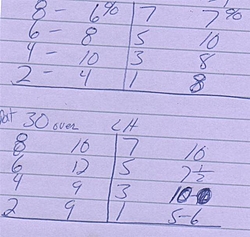 8 - 6% | 7 7%
6 - 8 | 5 10
4 - 10 | 3 8
2 - 4 | 1 8
30 over LH
8 10 | 7 10
6 12 | 5 7½
4 9 | 3 10-
2 9 | 1 5-6